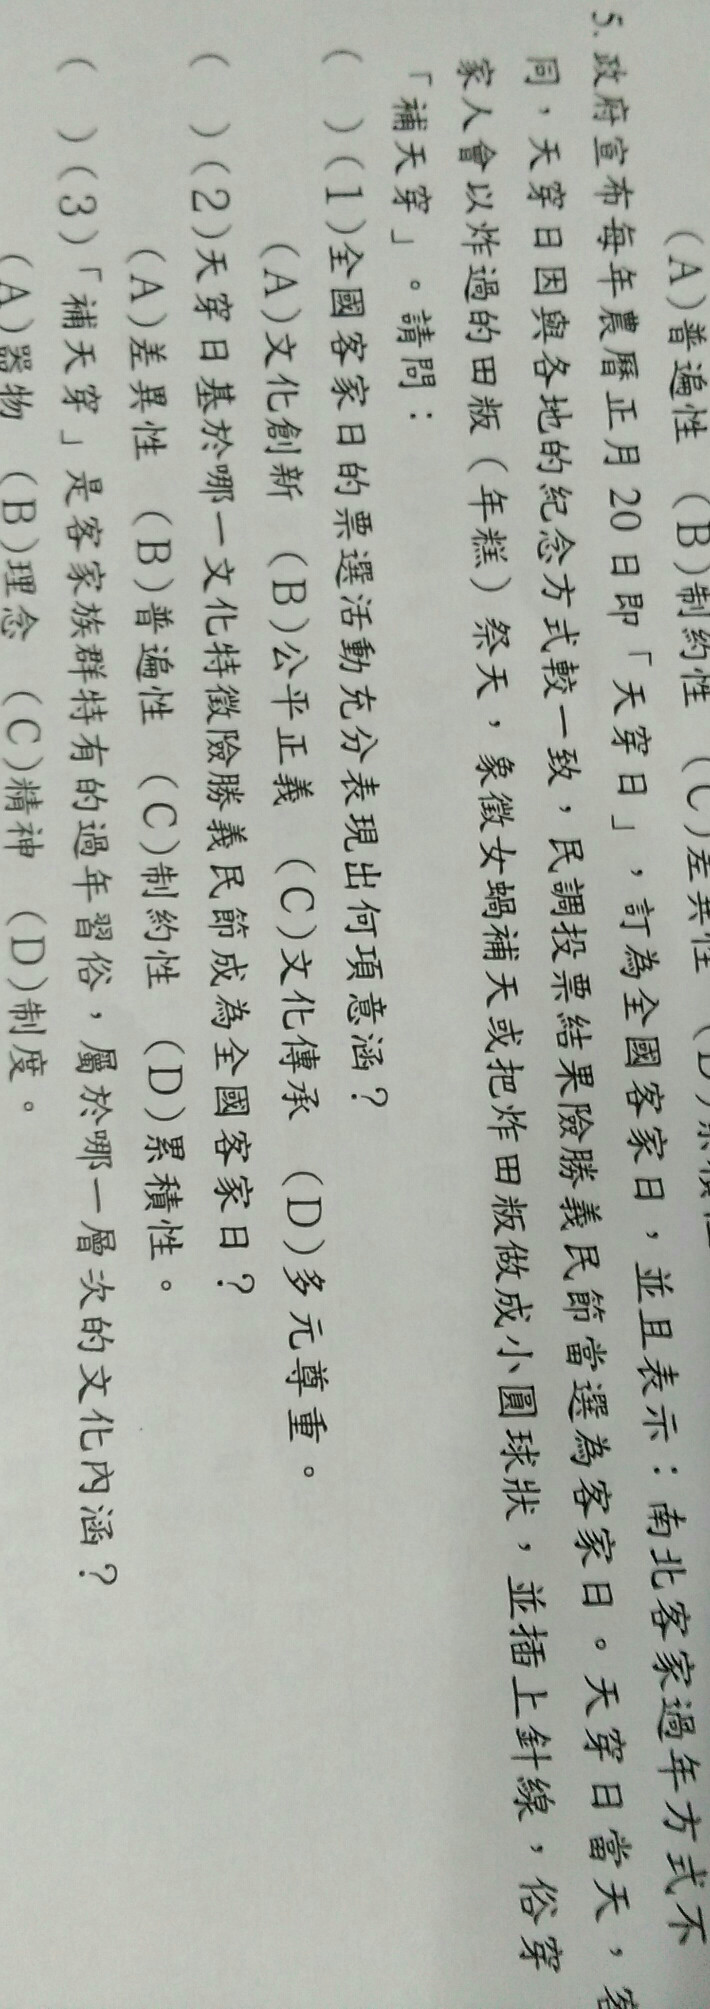 (A)普遍性 (B)制約性 (C)差異性
5.政府宣布每年農曆正月20日即「天穿日」,訂為全國客家日,並且表示:南北客家過年方式不
同,天穿日因與各地的紀念方式較一致,民調投票結果險勝義民節當選為客家日。天穿日當天,客
家人會以炸過的田粄(年糕)祭天,象徵女媧補天或把炸田粄做成小圓球狀,並插上針線,俗穿
「補天穿」。請問:
( )(1)全國客家日的票選活動充分表現出何項意涵?
(A)文化創新 (B)公平正義 (C)文化傳承 (D)多元尊重。
( )(2)天穿日基於哪一文化特徵險勝義民節成為全國客家日?
(A)差異性 (B)普遍性 (C)制約性 (D)累積性。
( )(3)「補天穿」是客家族群特有的過年習俗,屬於哪一層次的文化內涵?
(A)器物 (B)理念 (C)精神 (D)制度。